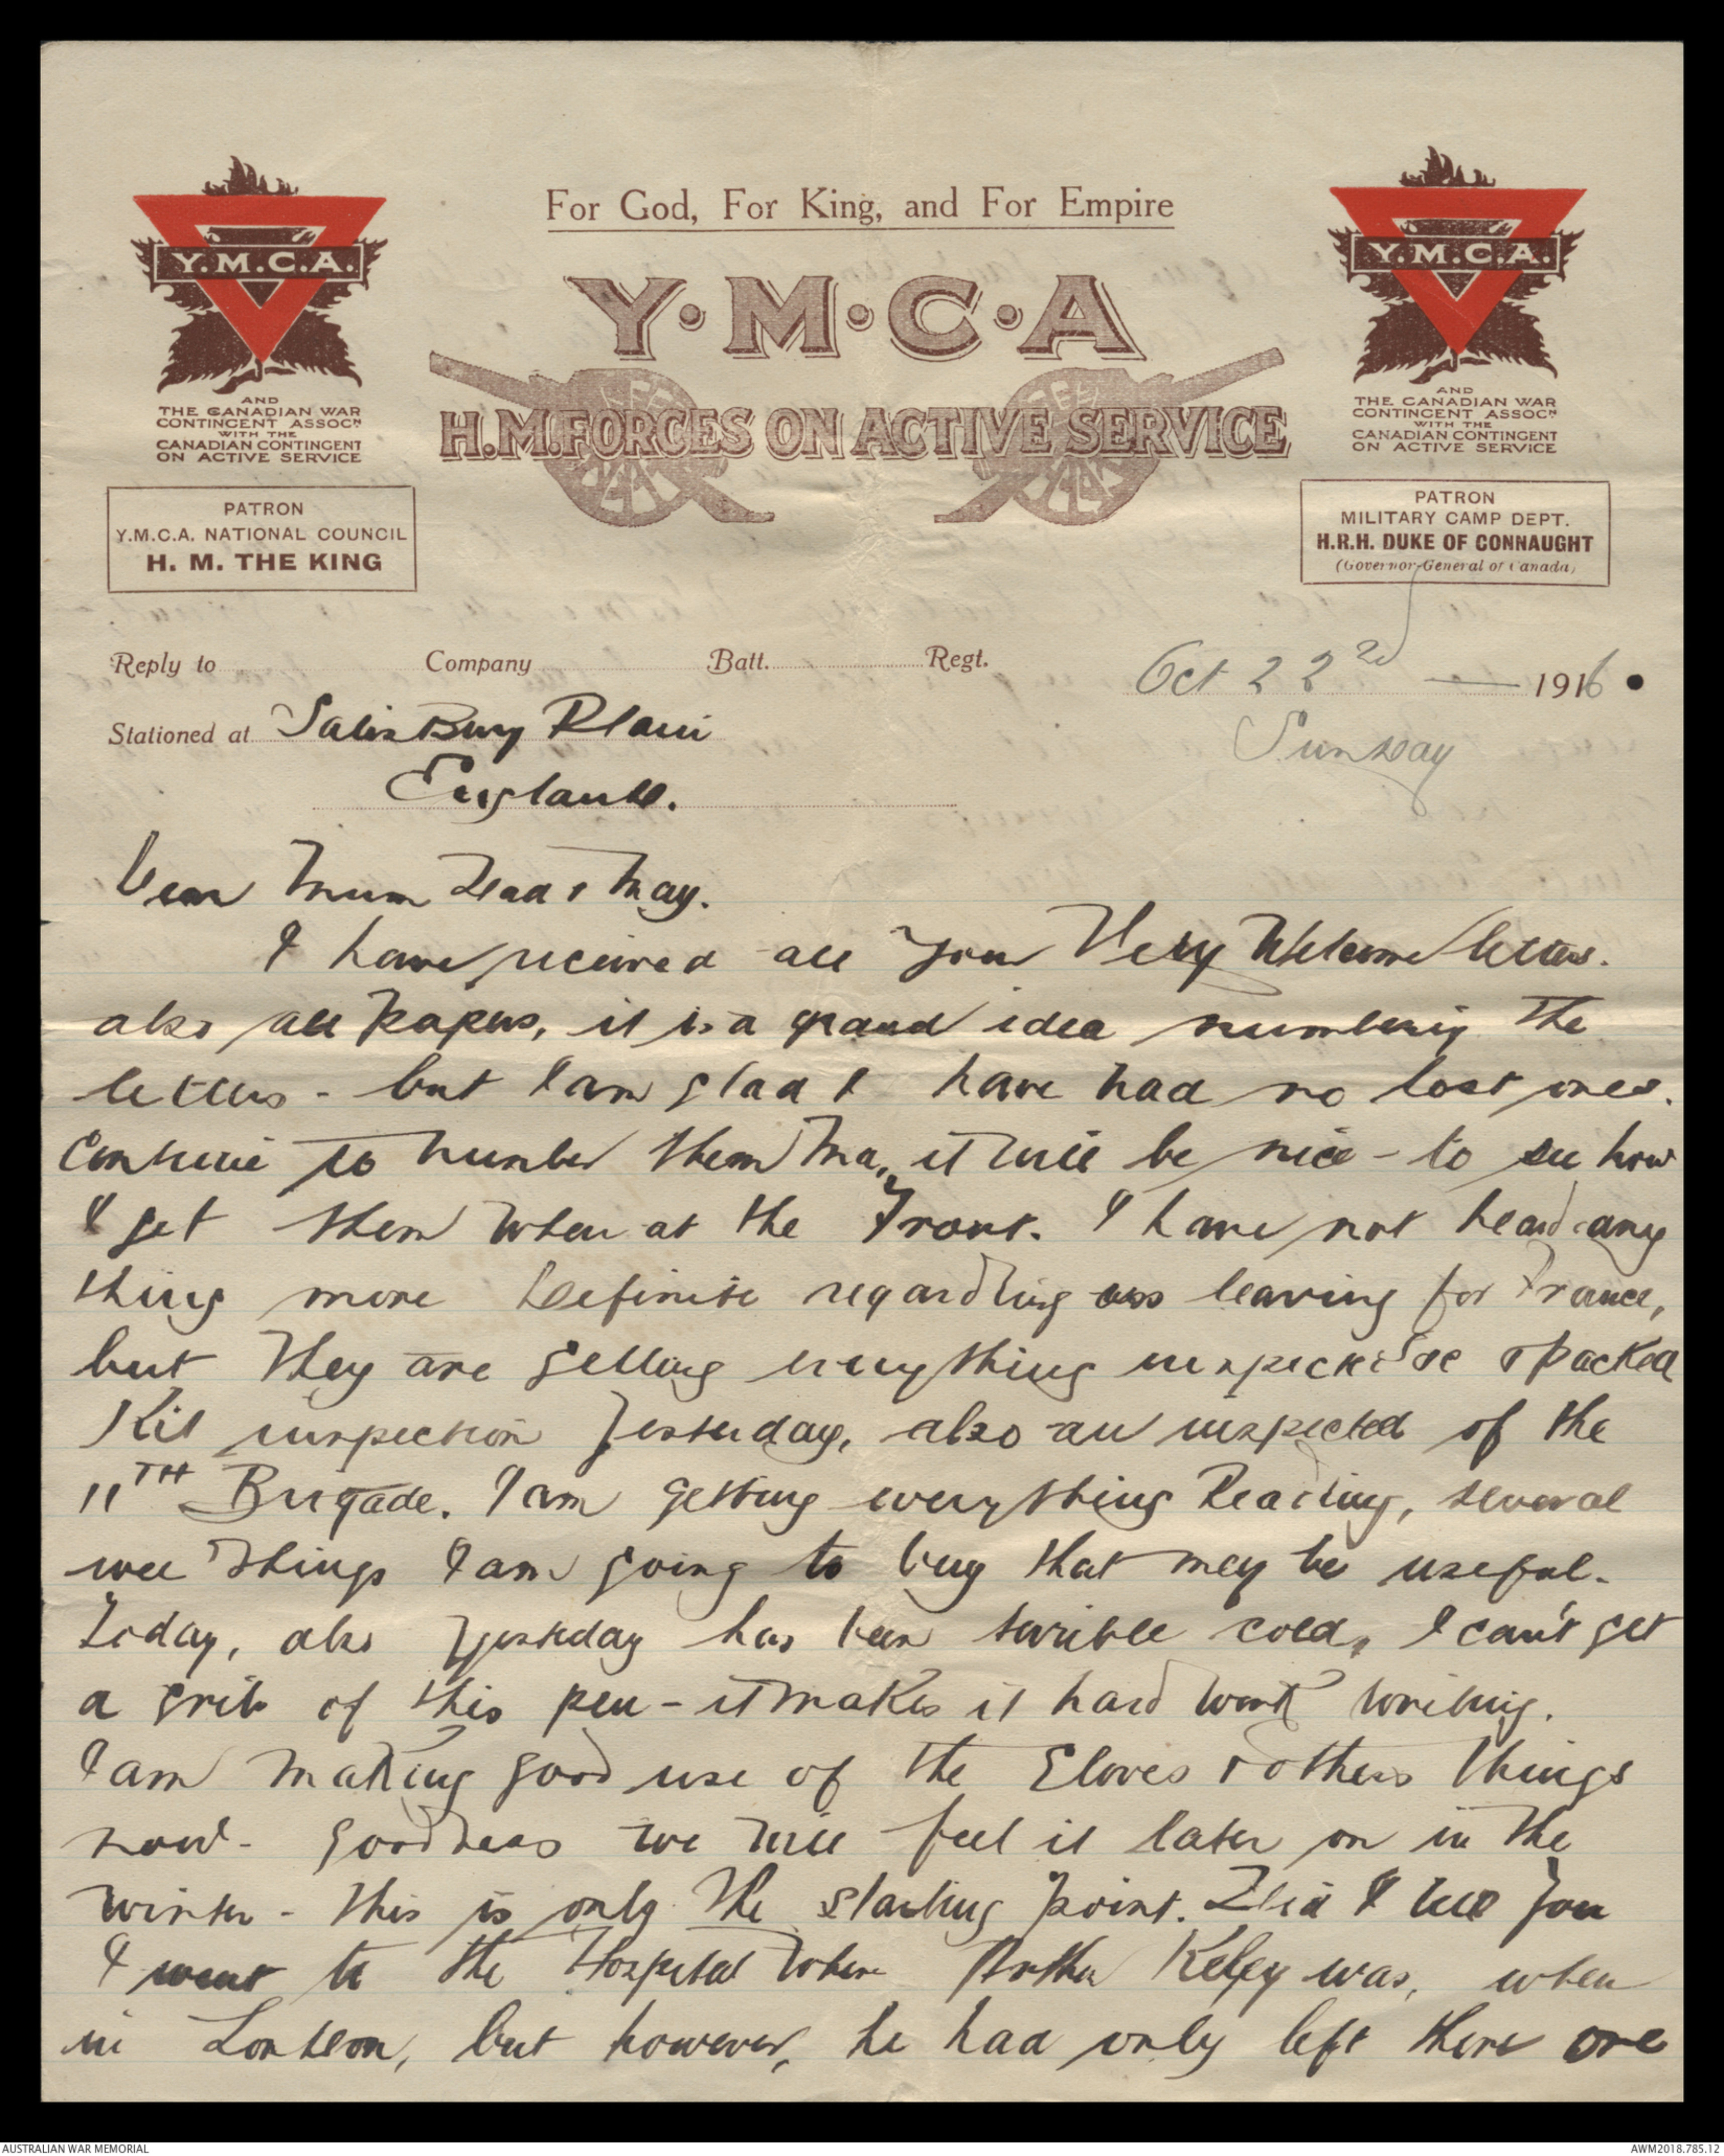 For God, For King, and For Empire
Y.M.C.A.
Y·M·C·A
Y.M.C.A.
H.M. FORCES ON ACTIVE SERVICE
AND
THE CANADIAN WAR
CONTINGENT ASSOCN
WITH THE
CANADIAN CONTINGENT
ON ACTIVE SERVICE
AND
THE CANADIAN WAR
CONTINGENT ASSOCN
WITH THE
CANADIAN CONTINGENT
ON ACTIVE SERVICE
PATRON
Y.M.C.A. NATIONAL COUNCIL
H. M. THE KING
PATRON
MILITARY CAMP DEPT.
H.R.H. DUKE OF CONNAUGHT
(Governor-General of Canada)
Reply to Company Batt. Regt. Oct 22nd — 1916.
Stationed at Salisbury Plain Sunday
England.
Dear Mum Dad & May.
I have received all your Very Welcome letters.
also all papers, it is a grand idea numbering the
letters - but I am glad I have had no lost ones.
Continue to number them Ma, it will be nice - to see how
I get them when at the Front. I have not heard any
thing more Definite regarding our leaving for France,
but they are getting everything inspected & packed
Kit inspection Yesterday, also an inspected of the
11TH Brigade. I am getting everything Ready, several
wee things I am going to buy that may be useful.
Today, also Yesterday has been terrible cold, I can't get
a grip of this pen - it makes it hard work writing.
I am making good use of the Gloves & others things
now - goodness we will feel it later on in the
winter - this is only the starting point. Did I tell you
I went to the Hospital where Arthur was, when
in London, but however, he had only left there one
AUSTRALIAN WAR MEMORIAL
AWM2018.785.12